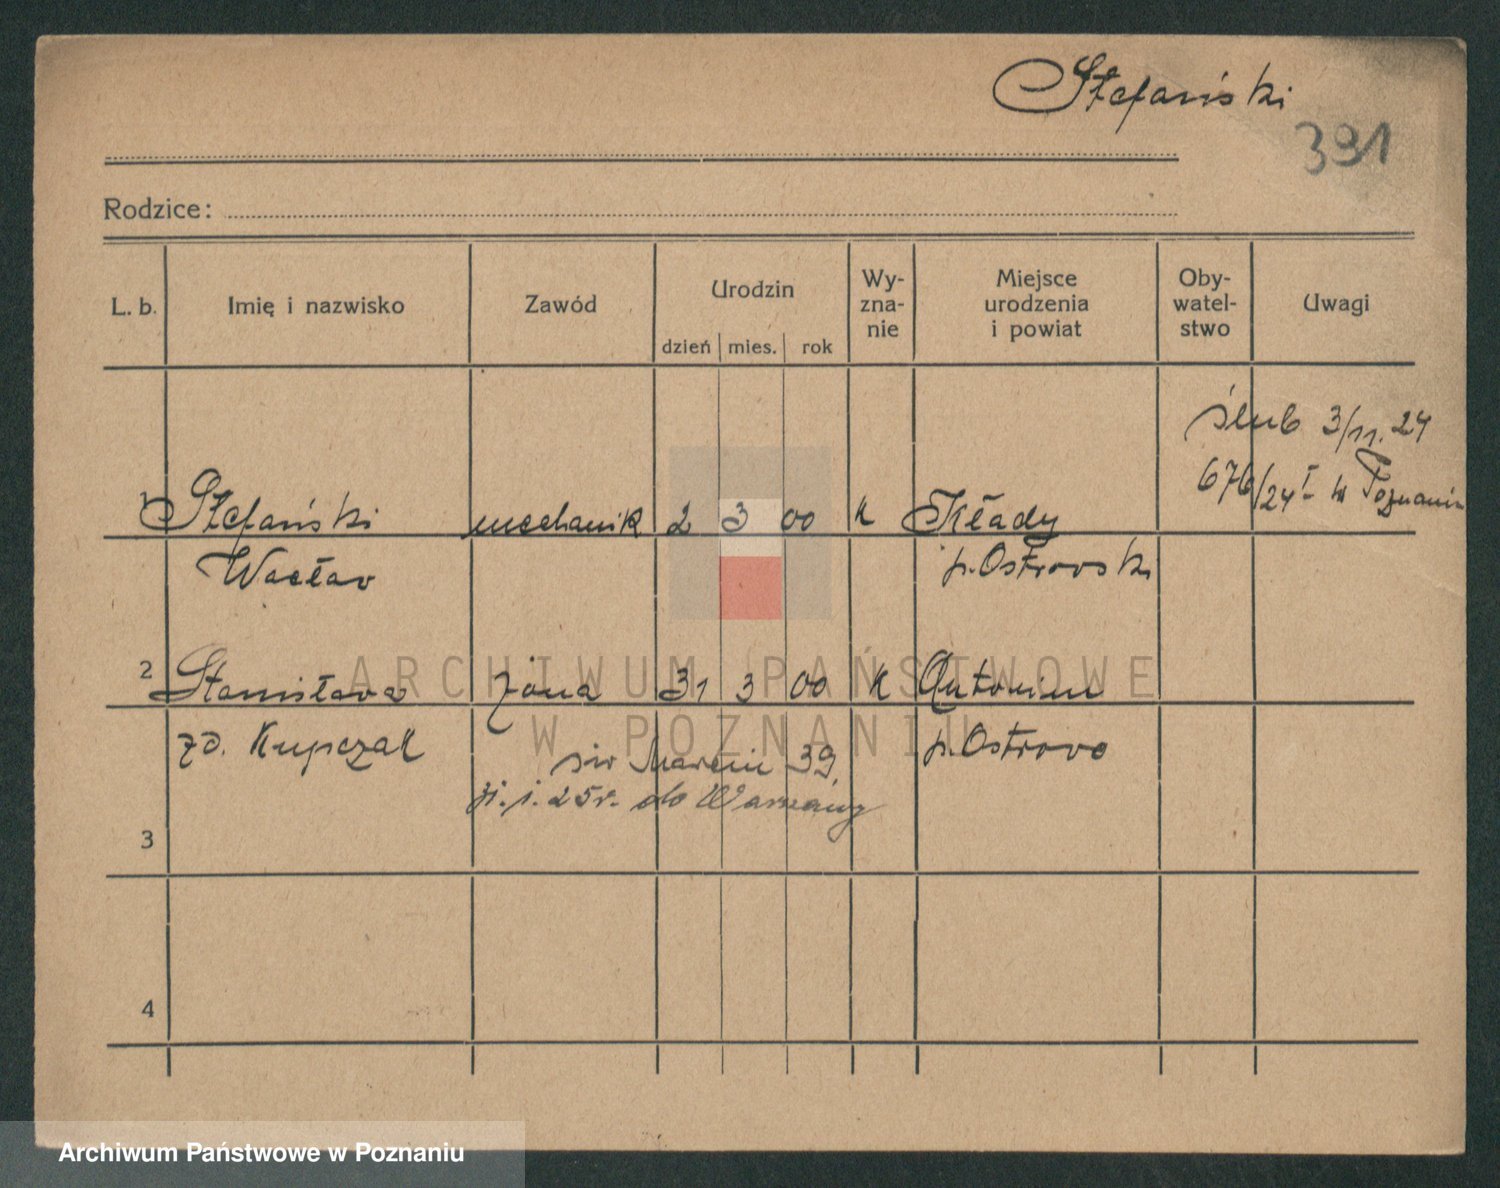 Stefański
391
Rodzice:
L. b. Imię i nazwisko Zawód Urodzin dzień mies. rok Wy-zna-nie Miejsce urodzenia i powiat Oby-watel-stwo Uwagi
ślub 3/11. 24
676/24 I w Poznaniu
1 Stefański mechanik 2 3 00 k Kłady
Wacław p. Ostrowski
2 Stanisława żona 31 3 00 k Antonin
zd. Kupczak p. Ostrowo
św Marcin 39.
25r. do Warszawy
3
4
ARCHIWUM PAŃSTWOWE
W POZNANIU
Archiwum Państwowe w Poznaniu